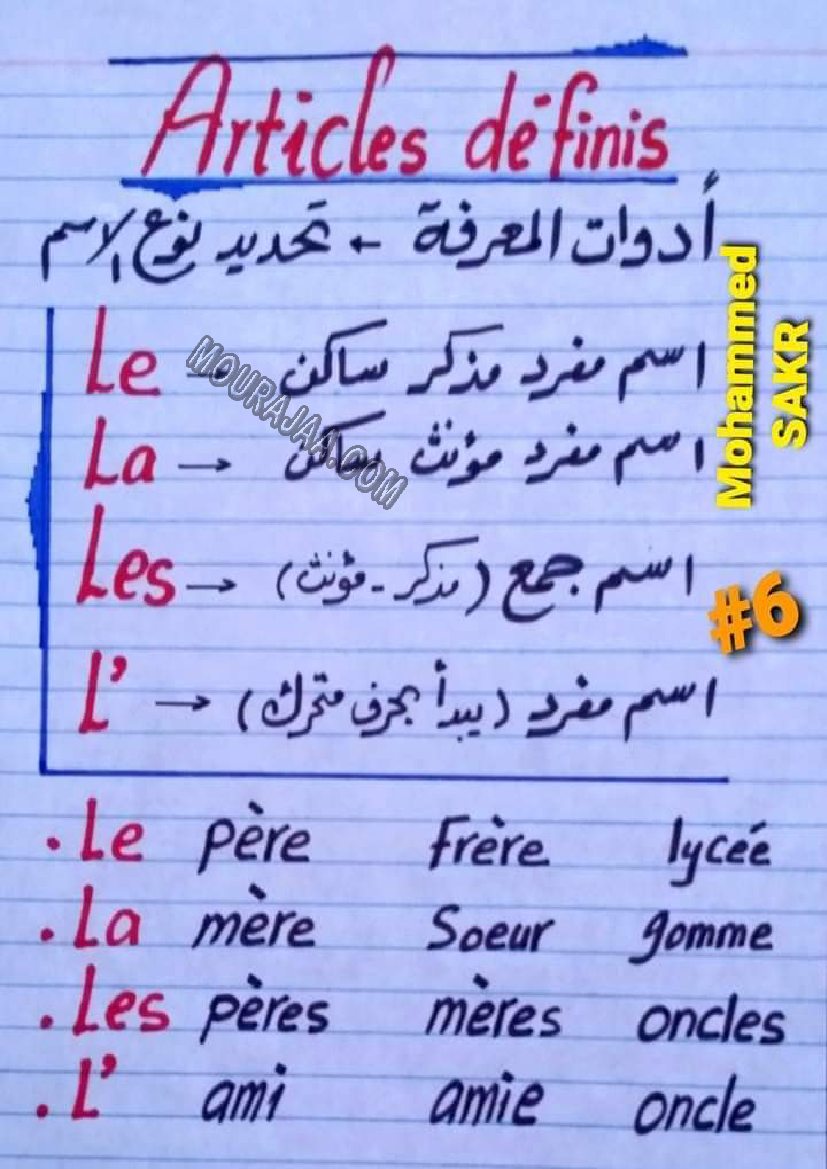 Articles définis
أدوات المعرفة ← تحديد نوع الاسم
Le → اسم مفرد مذكر ساكن
La → اسم مفرد مؤنث ساكن
Les → اسم جمع (مذكر - مؤنث)
L' → اسم مفرد (يبدأ بحرف متحرك)
MOURAJAA.COM
Mohammed
SAKR
#6
. Le père frère lycée
. La mère Soeur gomme
. Les pères mères oncles
. L' ami amie oncle